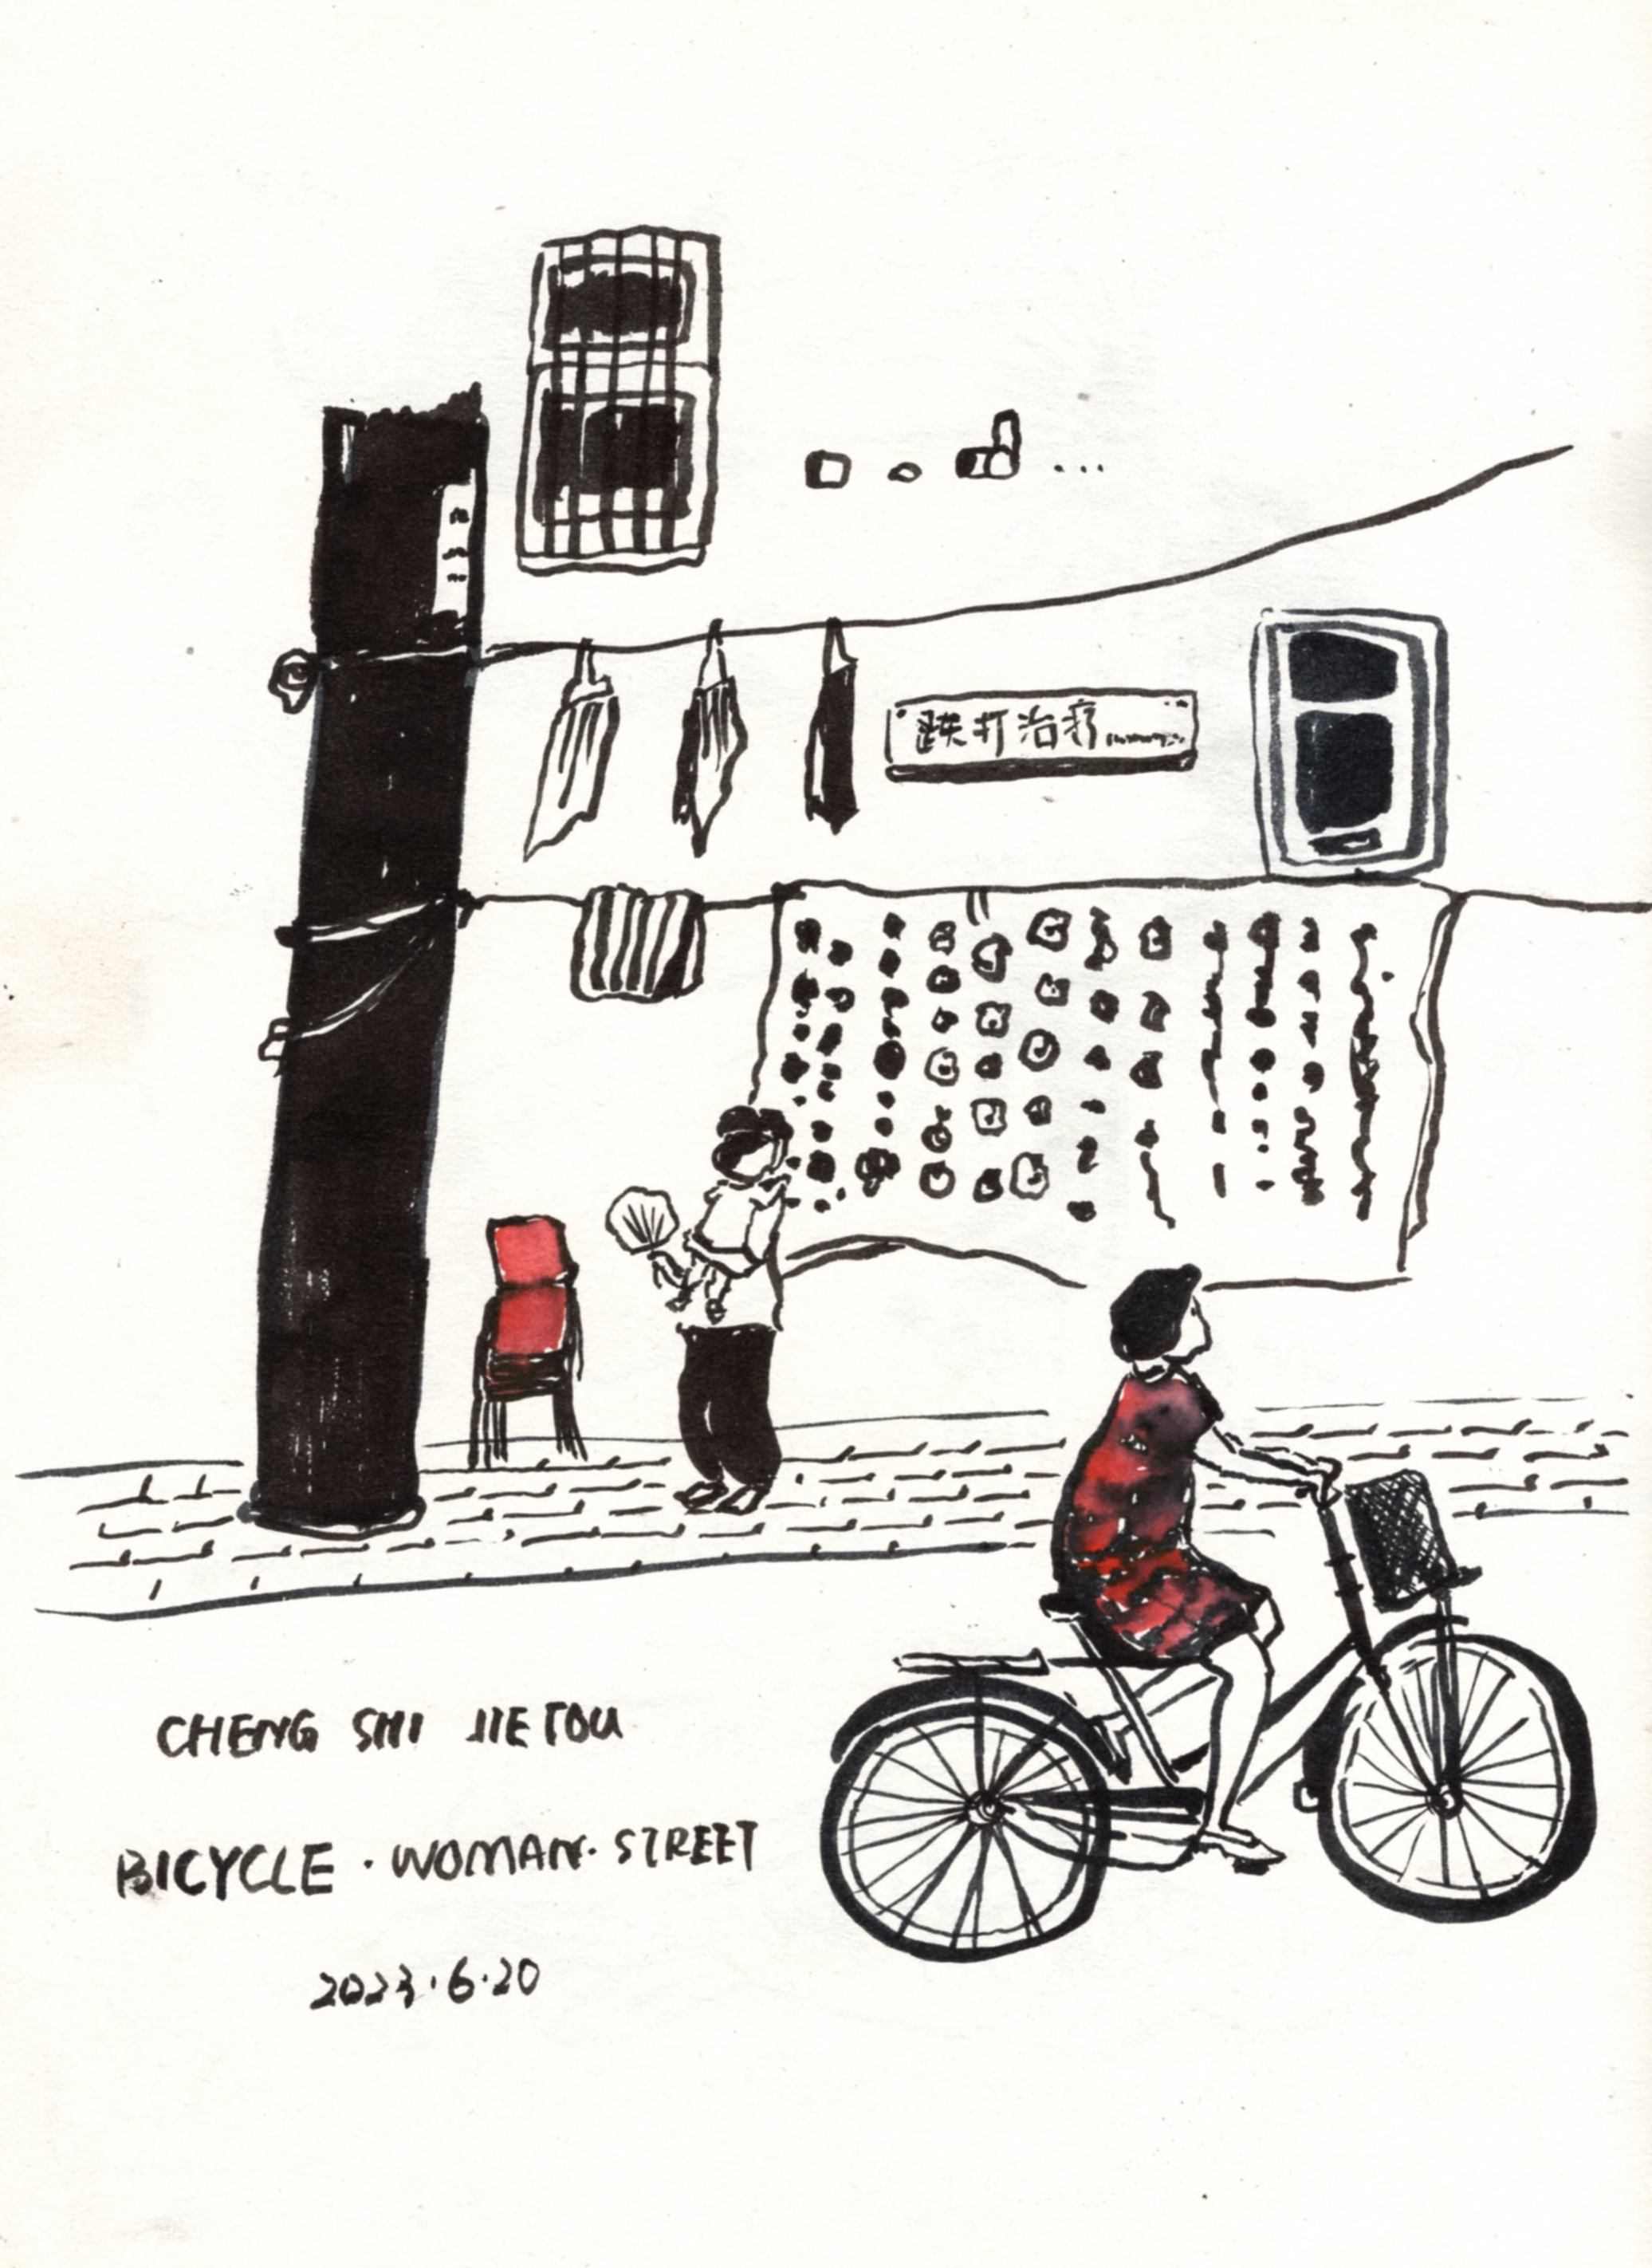 跌打治疗
CHENG SHI JIETOU
BICYCLE · WOMAN · STREET
2023·6·20